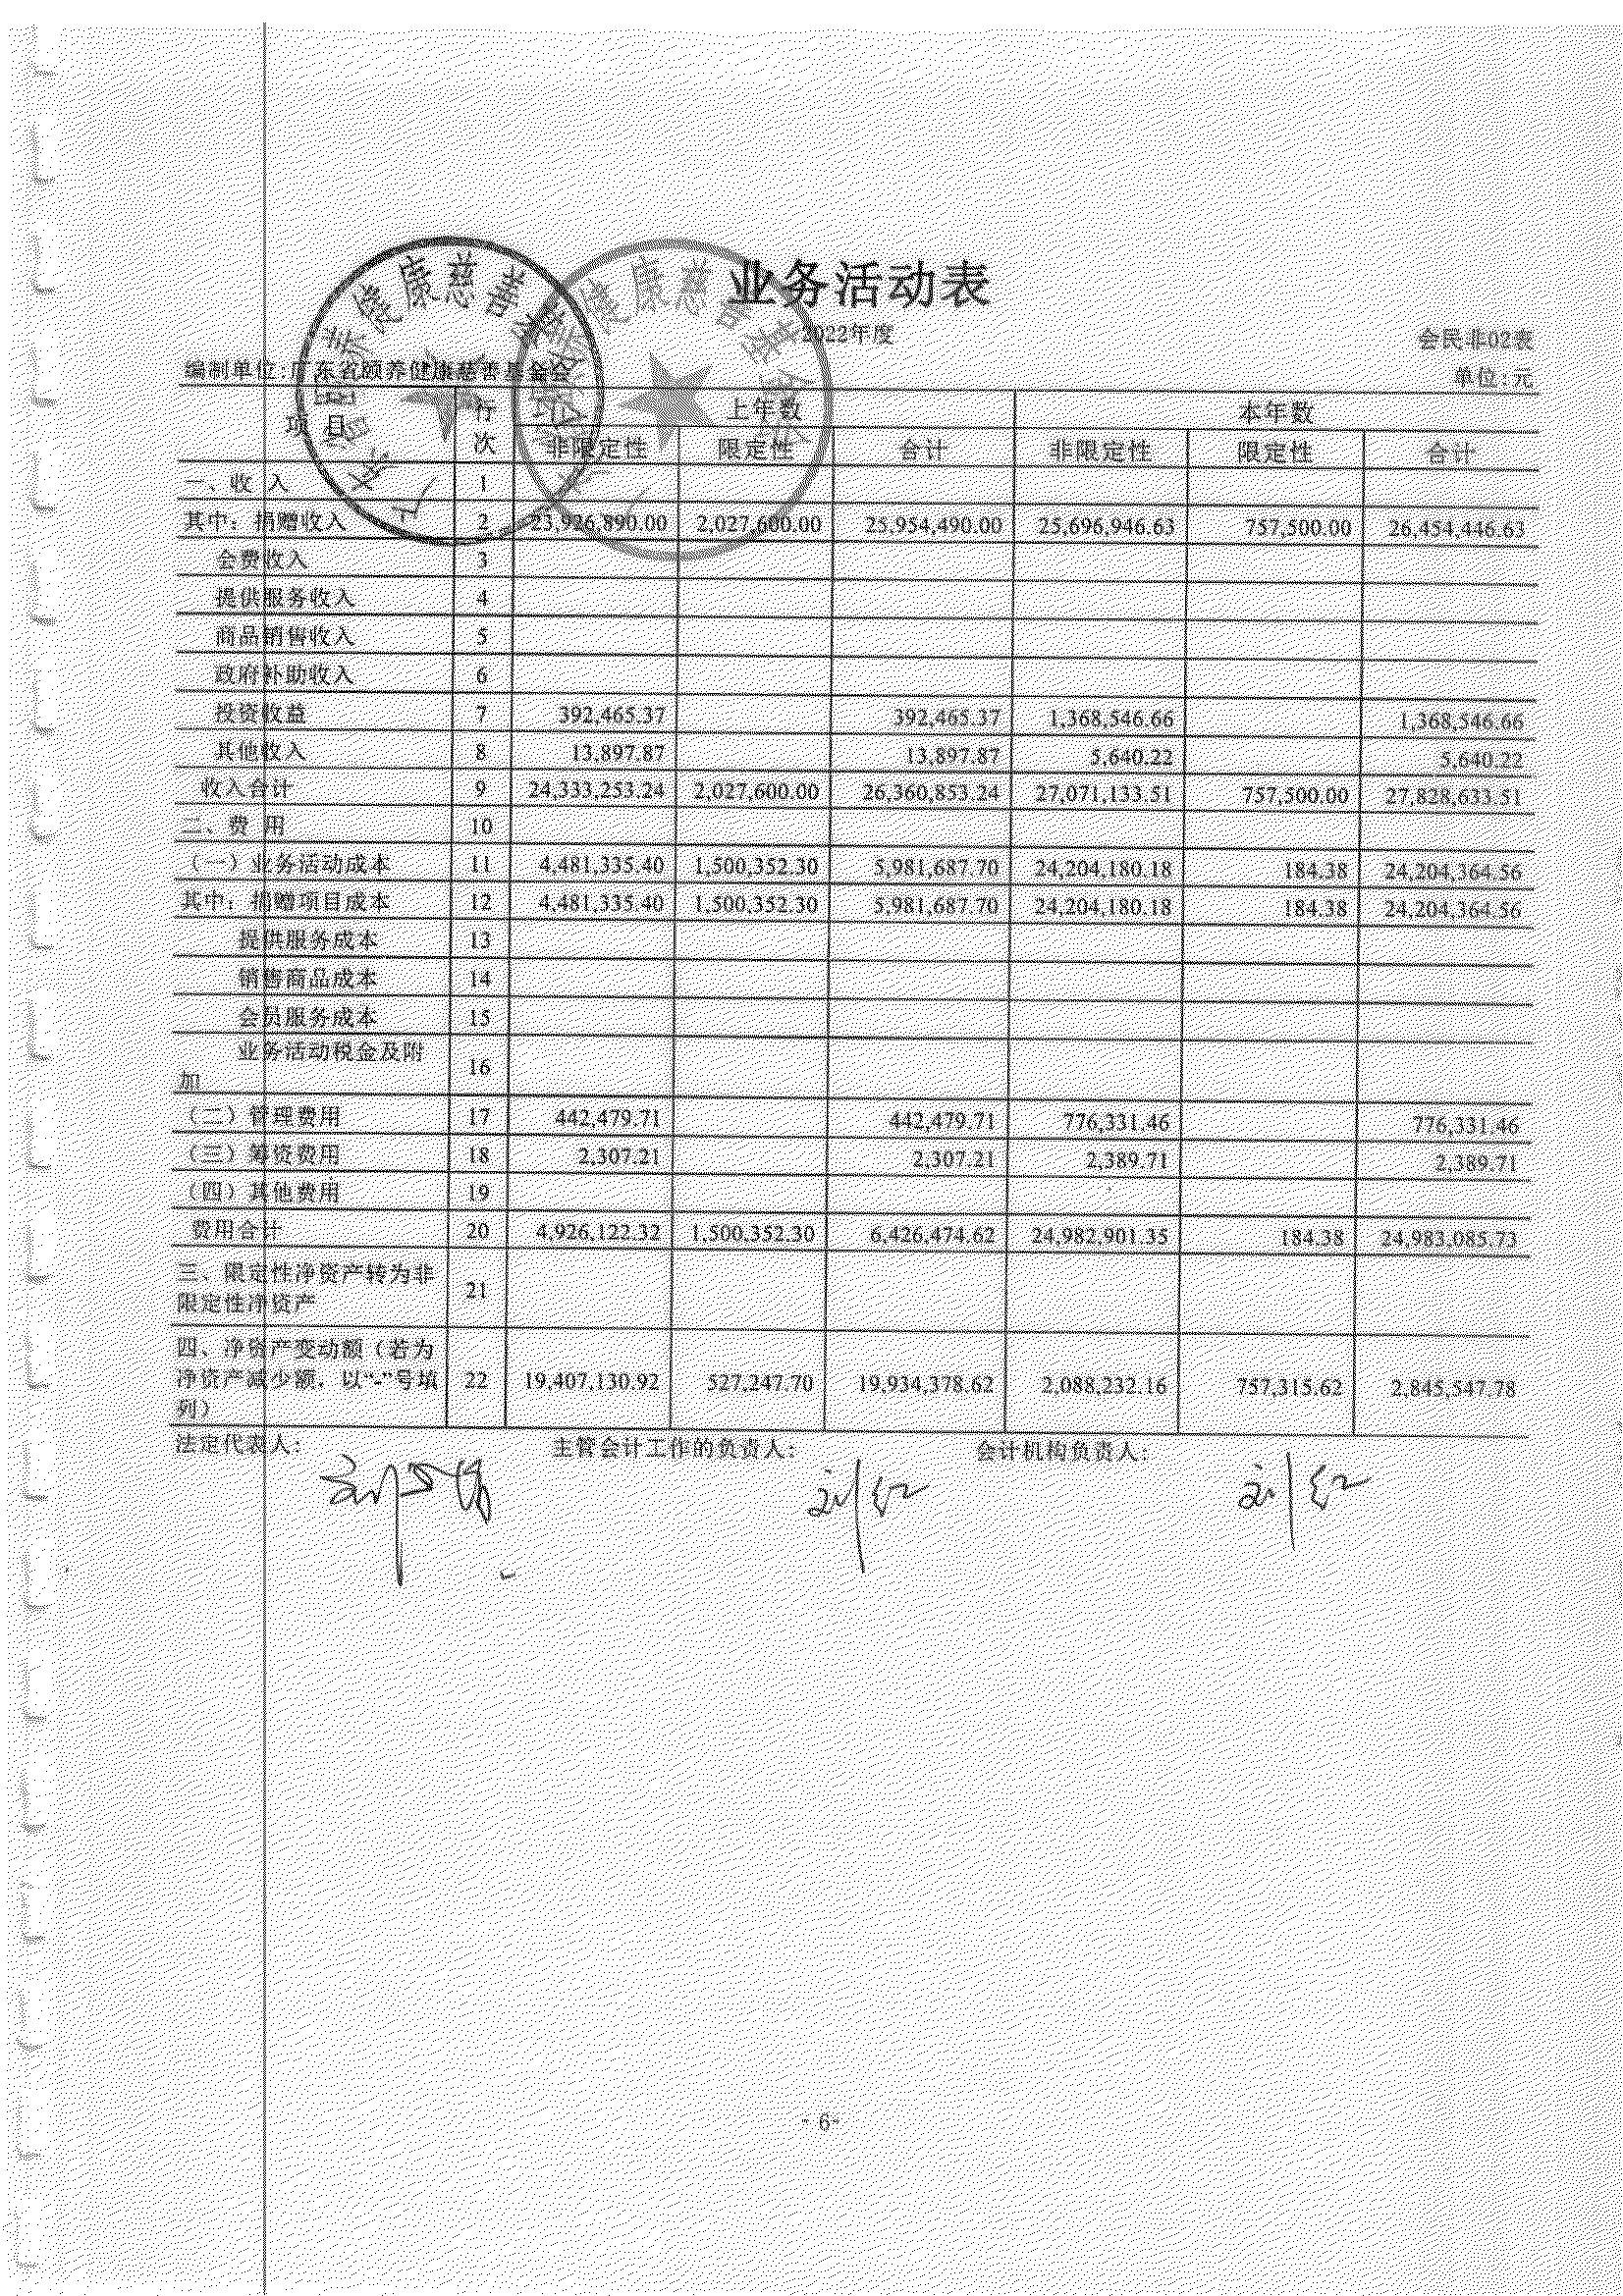 业务活动表
2022年度
会民非02表
编制单位:广东省颐养健康慈善基金会
单位:元
项 目 行次 上年数 本年数
非限定性 限定性 合计 非限定性 限定性 合计
一、收 入 1
其中：捐赠收入 2 23,926,890.00 2,027,600.00 25,954,490.00 25,696,946.63 757,500.00 26,454,446.63
会费收入 3
提供服务收入 4
商品销售收入 5
政府补助收入 6
投资收益 7 392,465.37 392,465.37 1,368,546.66 1,368,546.66
其他收入 8 13,897.87 13,897.87 5,640.22 5,640.22
收入合计 9 24,333,253.24 2,027,600.00 26,360,853.24 27,071,133.51 757,500.00 27,828,633.51
二、费 用 10
（一）业务活动成本 11 4,481,335.40 1,500,352.30 5,981,687.70 24,204,180.18 184.38 24,204,364.56
其中：捐赠项目成本 12 4,481,335.40 1,500,352.30 5,981,687.70 24,204,180.18 184.38 24,204,364.56
提供服务成本 13
销售商品成本 14
会员服务成本 15
业务活动税金及附
加 16
（二）管理费用 17 442,479.71 442,479.71 776,331.46 776,331.46
（三）筹资费用 18 2,307.21 2,307.21 2,389.71 2,389.71
（四）其他费用 19
费用合计 20 4,926,122.32 1,500,352.30 6,426,474.62 24,982,901.35 184.38 24,983,085.73
三、限定性净资产转为非
限定性净资产 21
四、净资产变动额（若为
净资产减少额，以“-”号填 22 19,407,130.92 527,247.70 19,934,378.62 2,088,232.16 757,315.62 2,845,547.78
列）
法定代表人: 主管会计工作的负责人: 会计机构负责人:
刘红 刘红
- 6-